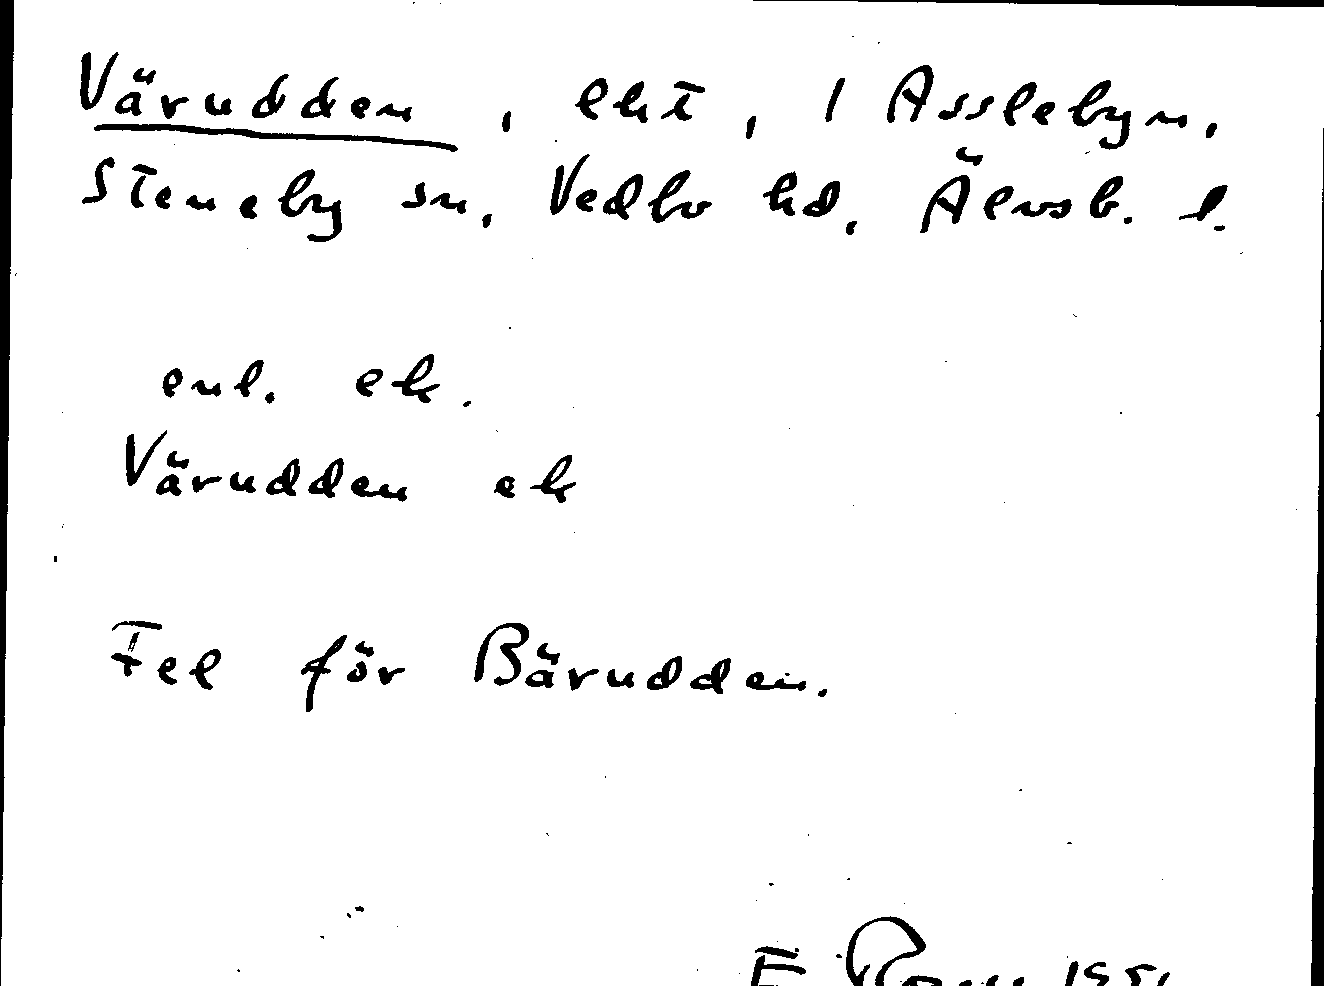 Värudden, lht, 1 Asslebyn,
Steneby sn, Vedbo hd, Älvsb. l.
enl. ek.
Värudden ek
Fel för Bärudden.
E